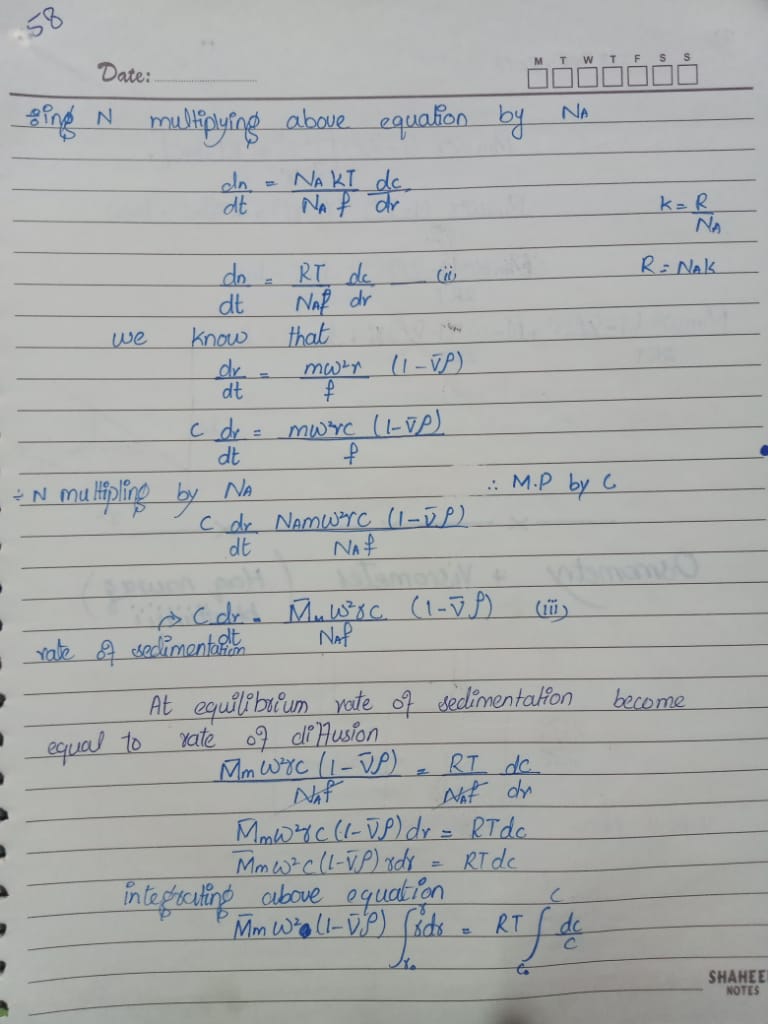 58
Date:
M T W T F S S
÷ing N multiplying above equation by NA
dn/dt = NA KT/NA f dc/dr
K = R/NA
dn/dt = RT/NAf dc/dr — (ii)
R = NAK
we know that
dr/dt = mω²r/f (1-V̄ρ)
C dr/dt = mω²rc (1-V̄ρ)/f
÷N multipling by NA ∴ M.P by C
C dr/dt NAmω²rc (1-V̄ρ)/NAf
→ C dr/dt = M̄mω²rc/NAf (1-V̄ρ) (iii)
rate of sedimentation
At equilibrium rate of sedimentation become
equal to rate of diffusion
M̄mω²rc (1-V̄ρ)/NAf = RT/NAf dc/dr
M̄mω²rc(1-V̄ρ)dr = RTdc
M̄mω²c(1-V̄ρ)rdr = RTdc
integrating above equation
M̄mω² (1-V̄ρ) ∫r₀^r rdr = RT ∫c₀^c dc/c
SHAHEE
NOTES